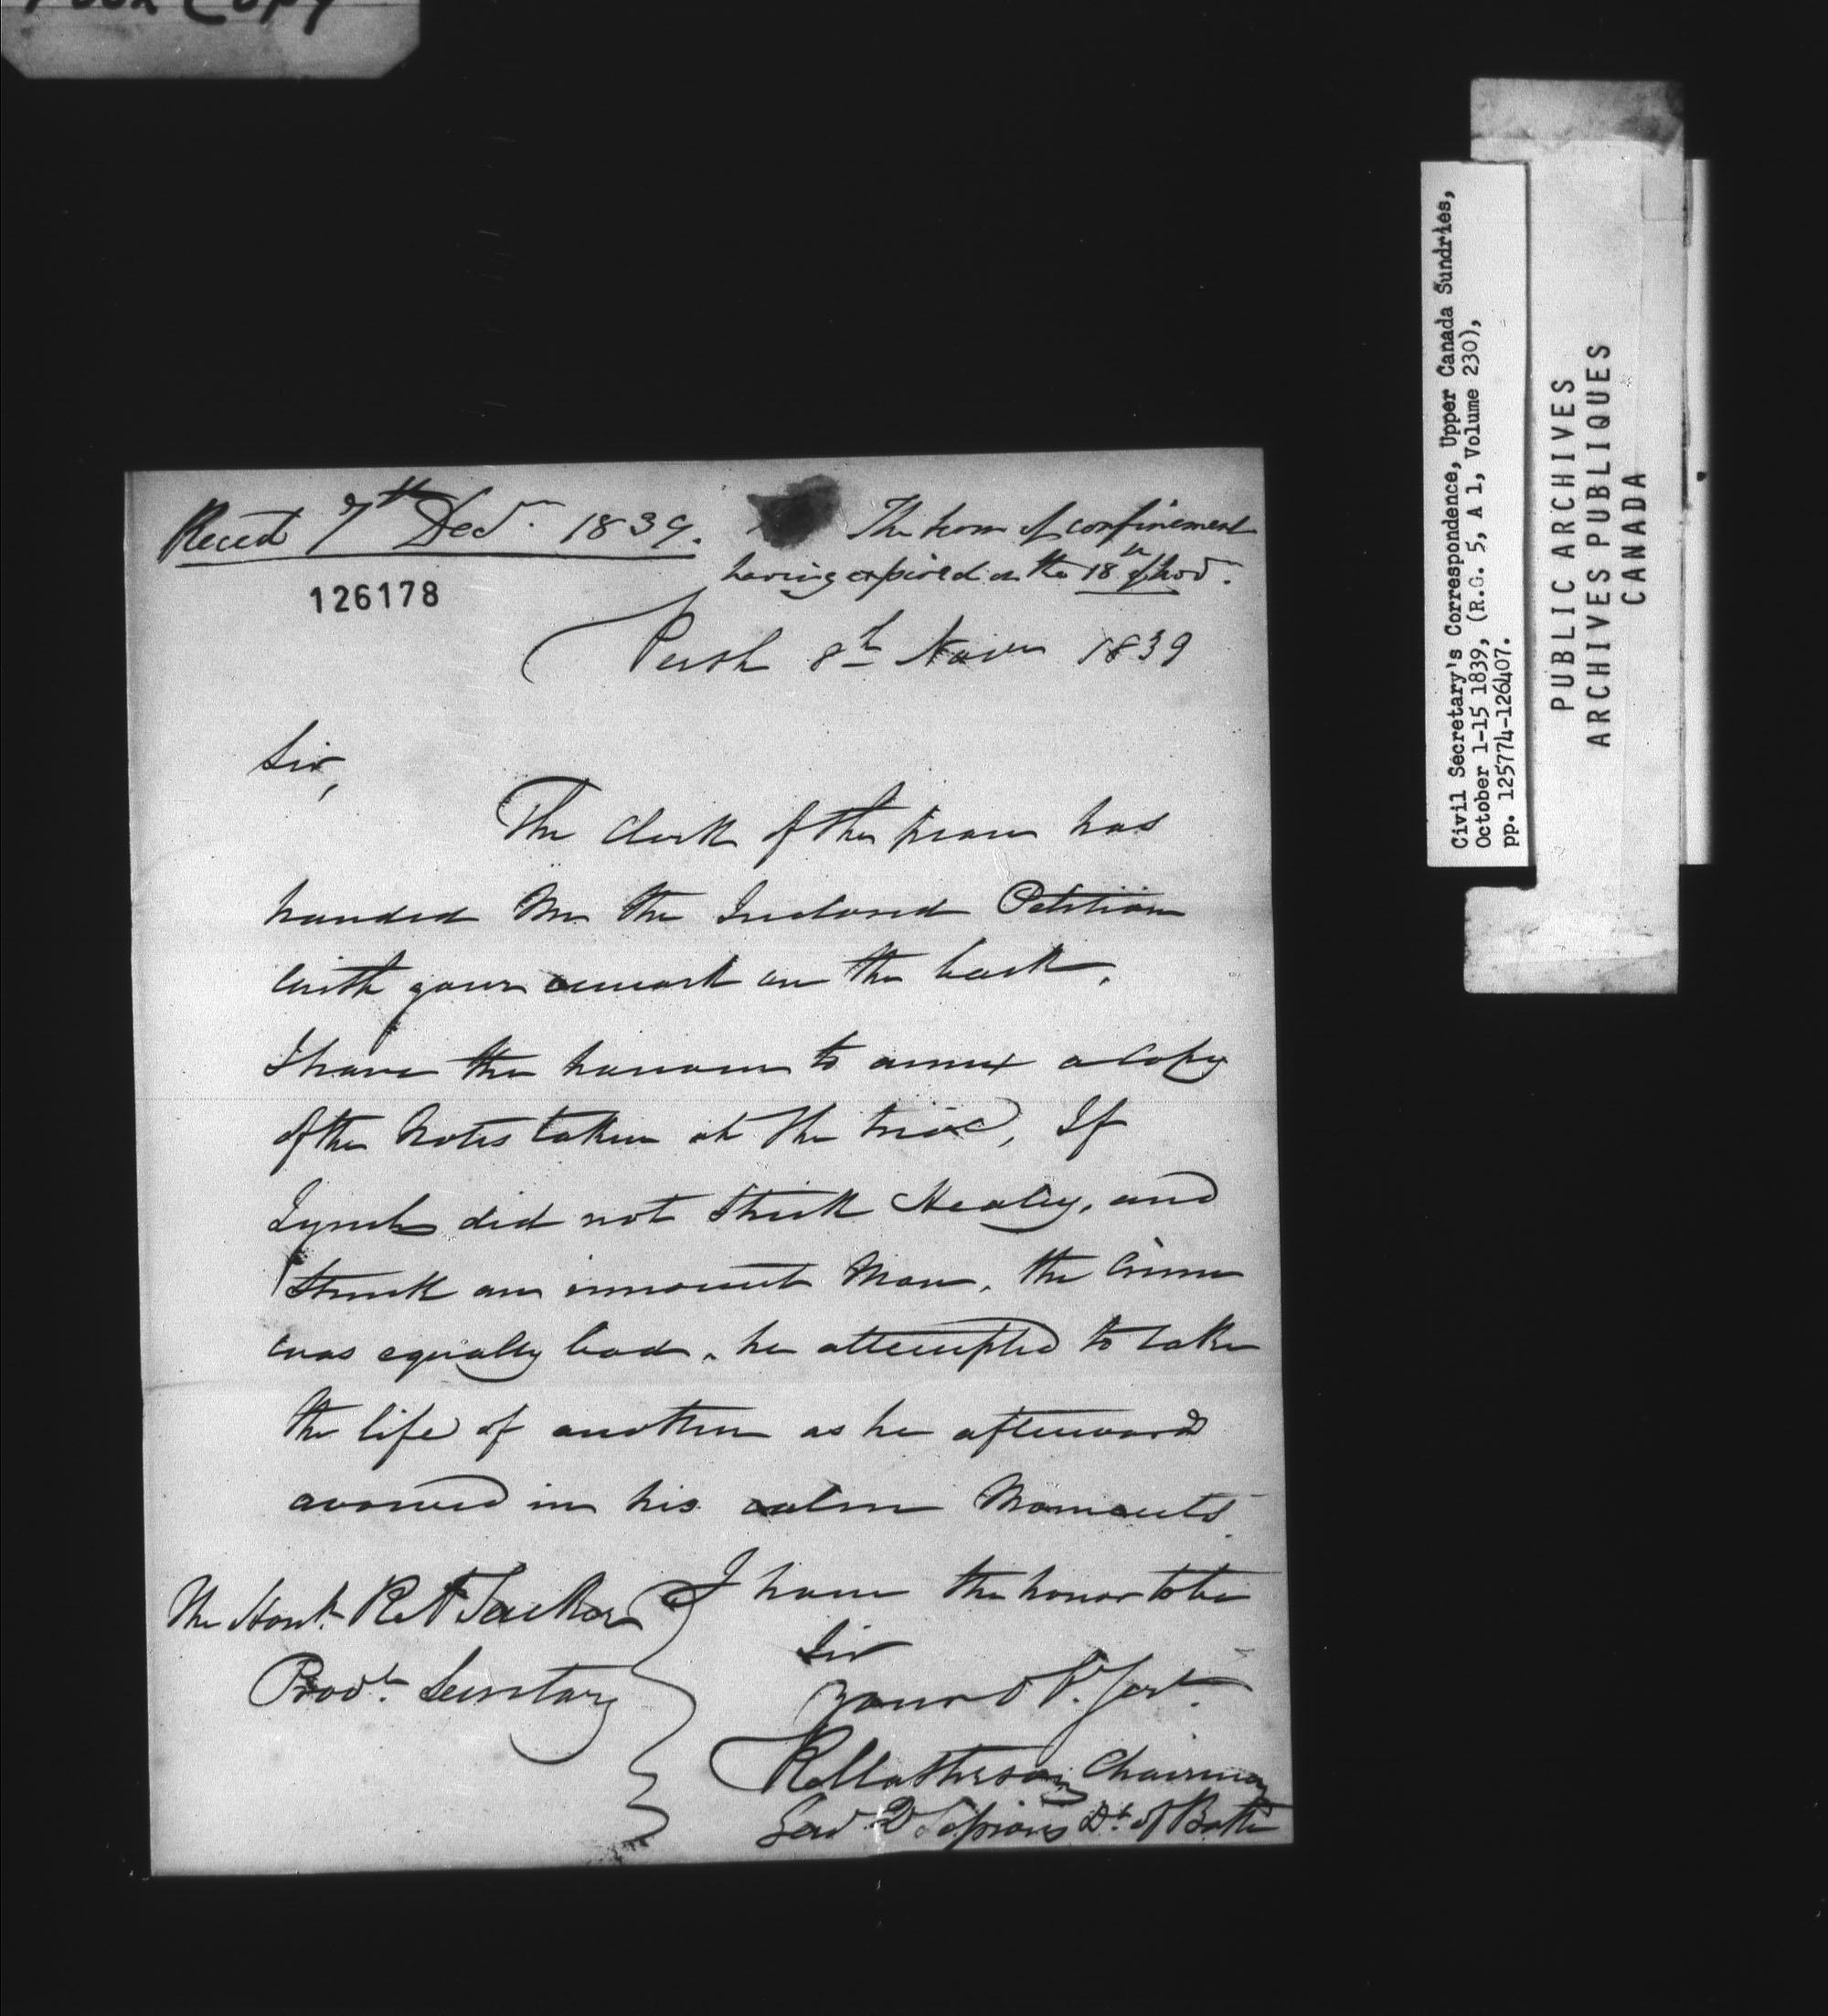 Poor Copy
Recd 7th Decr. 1839.
The term of confinement
having expired on the 18th of Nov.
126178
Perth 8th Novr 1839
Sir,
The Clerk of the peace has
handed me the Inclosed Petition
with your remark on the back.
I have the honour to annex a Copy
of the Notes taken at the trial, If
Lynch did not Strick Healey, and
Struck an innocent Man, the Crime
was equally bad, he attempted to take
the life of another as he afterward
avowed in his calm Moments.
I have the honor to be
Sir
Your Ob. Sert.
The Honb. R A Tucker
Provl. Secretary
R Matheson Chairman
Genl Qr Sessions Dt of Bathu
Civil Secretary's Correspondence, Upper Canada Sundries,
October 1-15 1839, (R.G. 5, A 1, Volume 230),
pp. 125774-126407.
PUBLIC ARCHIVES
ARCHIVES PUBLIQUES
CANADA